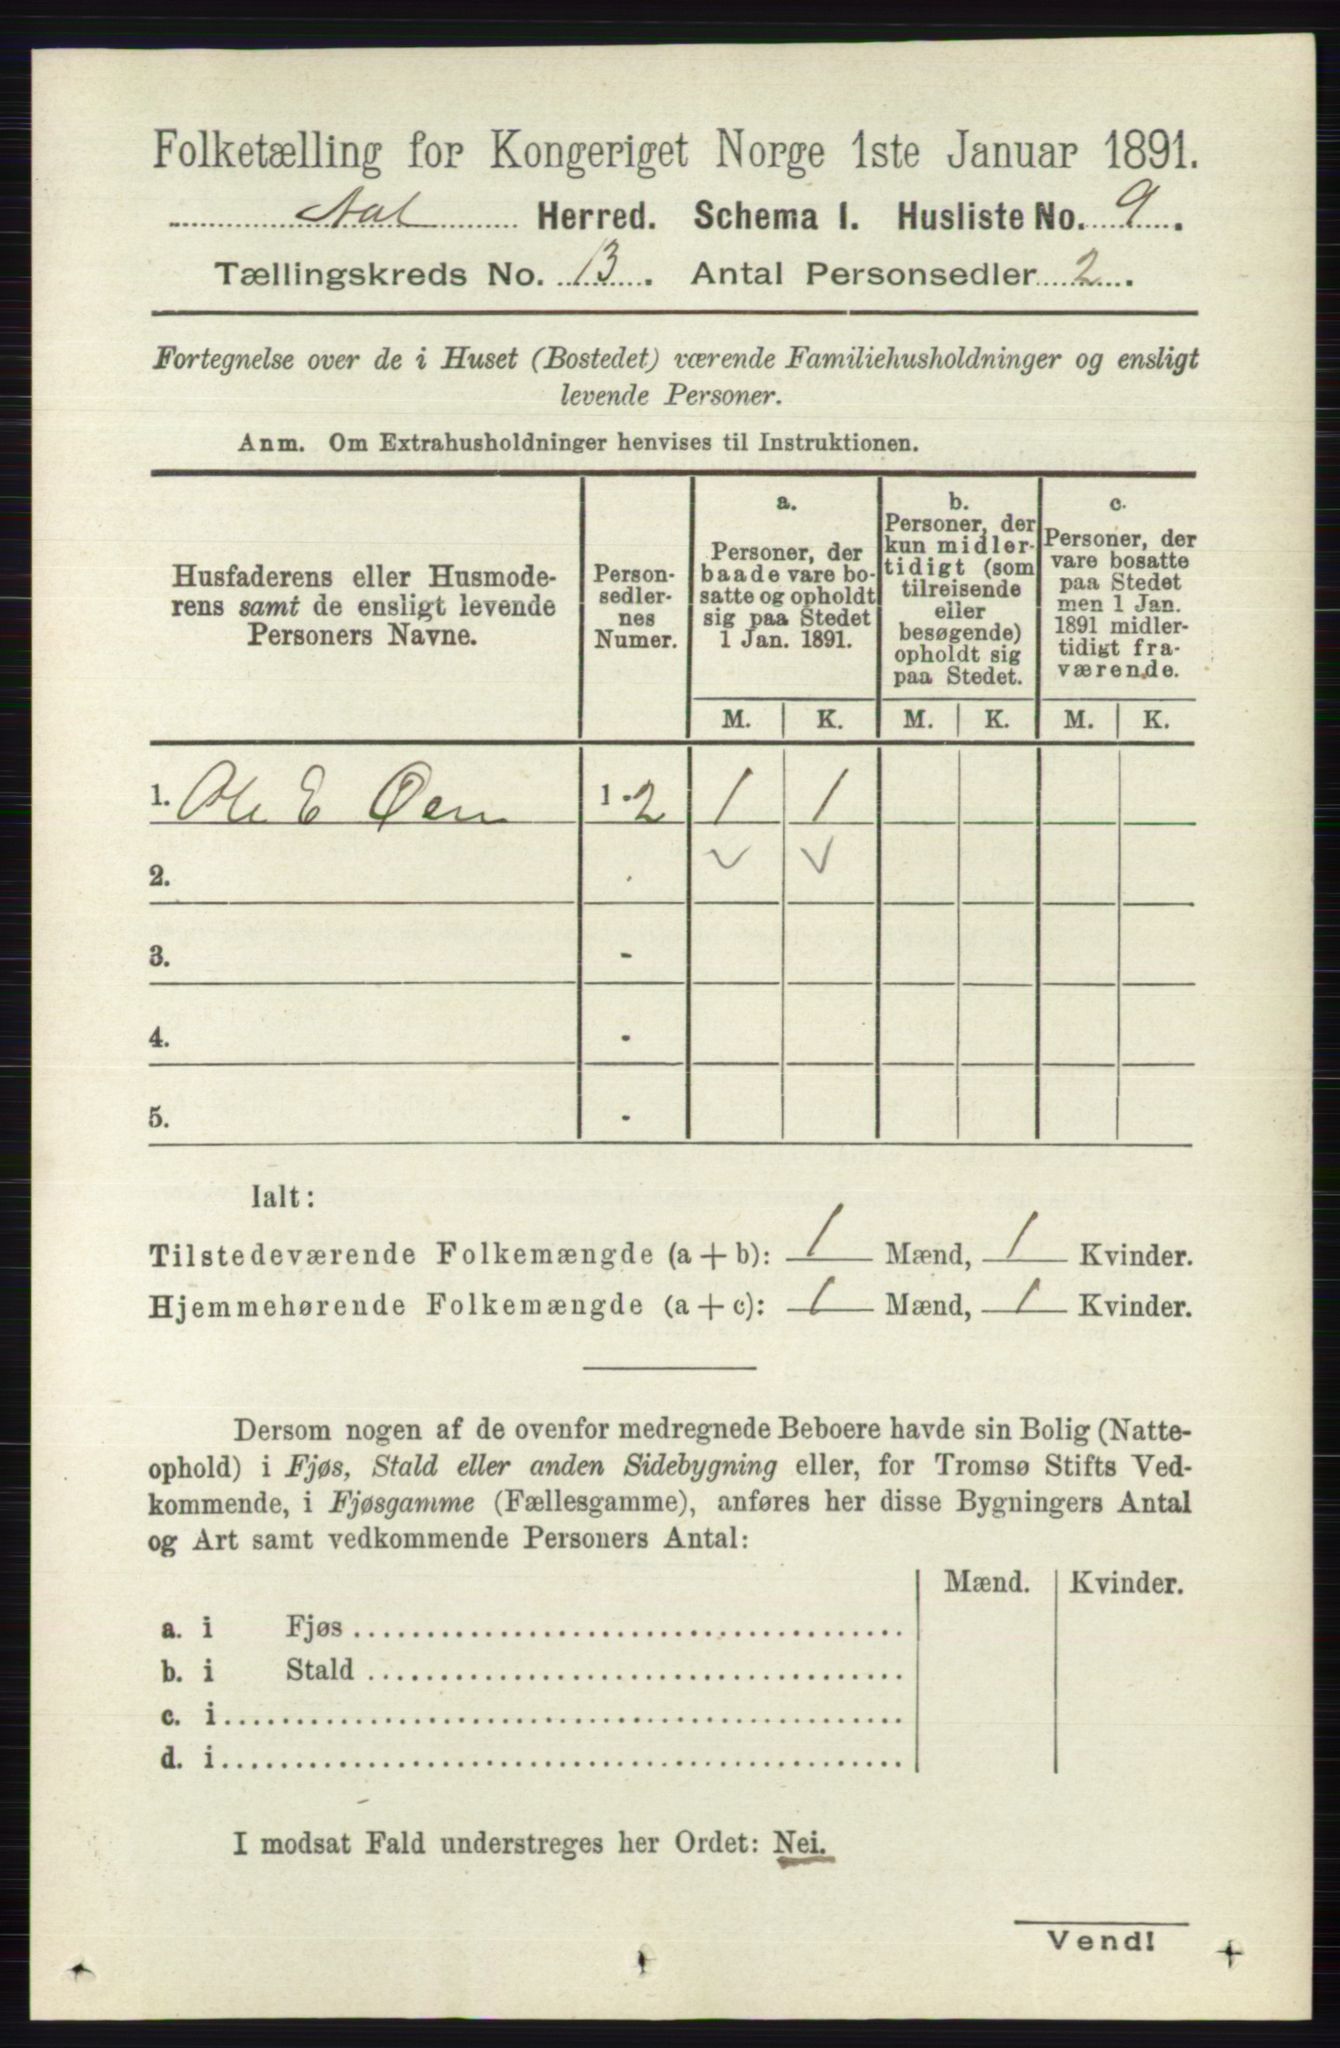 Folketælling for Kongeriget Norge 1ste Januar 1891.
Aal Herred. Schema I. Husliste No. 9.
Tællingskreds No. 13. Antal Personsedler 2.
Fortegnelse over de i Huset (Bostedet) værende Familiehusholdninger og ensligt
levende Personer.
Anm. Om Extrahusholdninger henvises til Instruktionen.
Husfaderens eller Husmode-
rens samt de ensligt levende
Personers Navne.
Person-
sedler-
nes
Numer.
a.
Personer, der
baade vare bo-
satte og opholdt
sig paa Stedet
1 Jan. 1891.
b.
Personer, der
kun midler-
tidigt (som
tilreisende
eller
besøgende)
opholdt sig
paa Stedet.
c.
Personer, der
vare bosatte
paa Stedet
men 1 Jan.
1891 midler-
tidigt fra-
værende.
M. K. M. K. M. K.
1. Ole E Øen 1-2 1 1
2.
3. -
4. -
5. -
Ialt:
Tilstedeværende Folkemængde (a + b): 1 Mænd, 1 Kvinder.
Hjemmehørende Folkemængde (a + c): 1 Mænd, 1 Kvinder.
Dersom nogen af de ovenfor medregnede Beboere havde sin Bolig (Natte-
ophold) i Fjøs, Stald eller anden Sidebygning eller, for Tromsø Stifts Ved-
kommende, i Fjøsgamme (Fællesgamme), anføres her disse Bygningers Antal
og Art samt vedkommende Personers Antal:
Mænd. Kvinder.
a. i Fjøs
b. i Stald
c. i
d. i
I modsat Fald understreges her Ordet: Nei.
Vend!